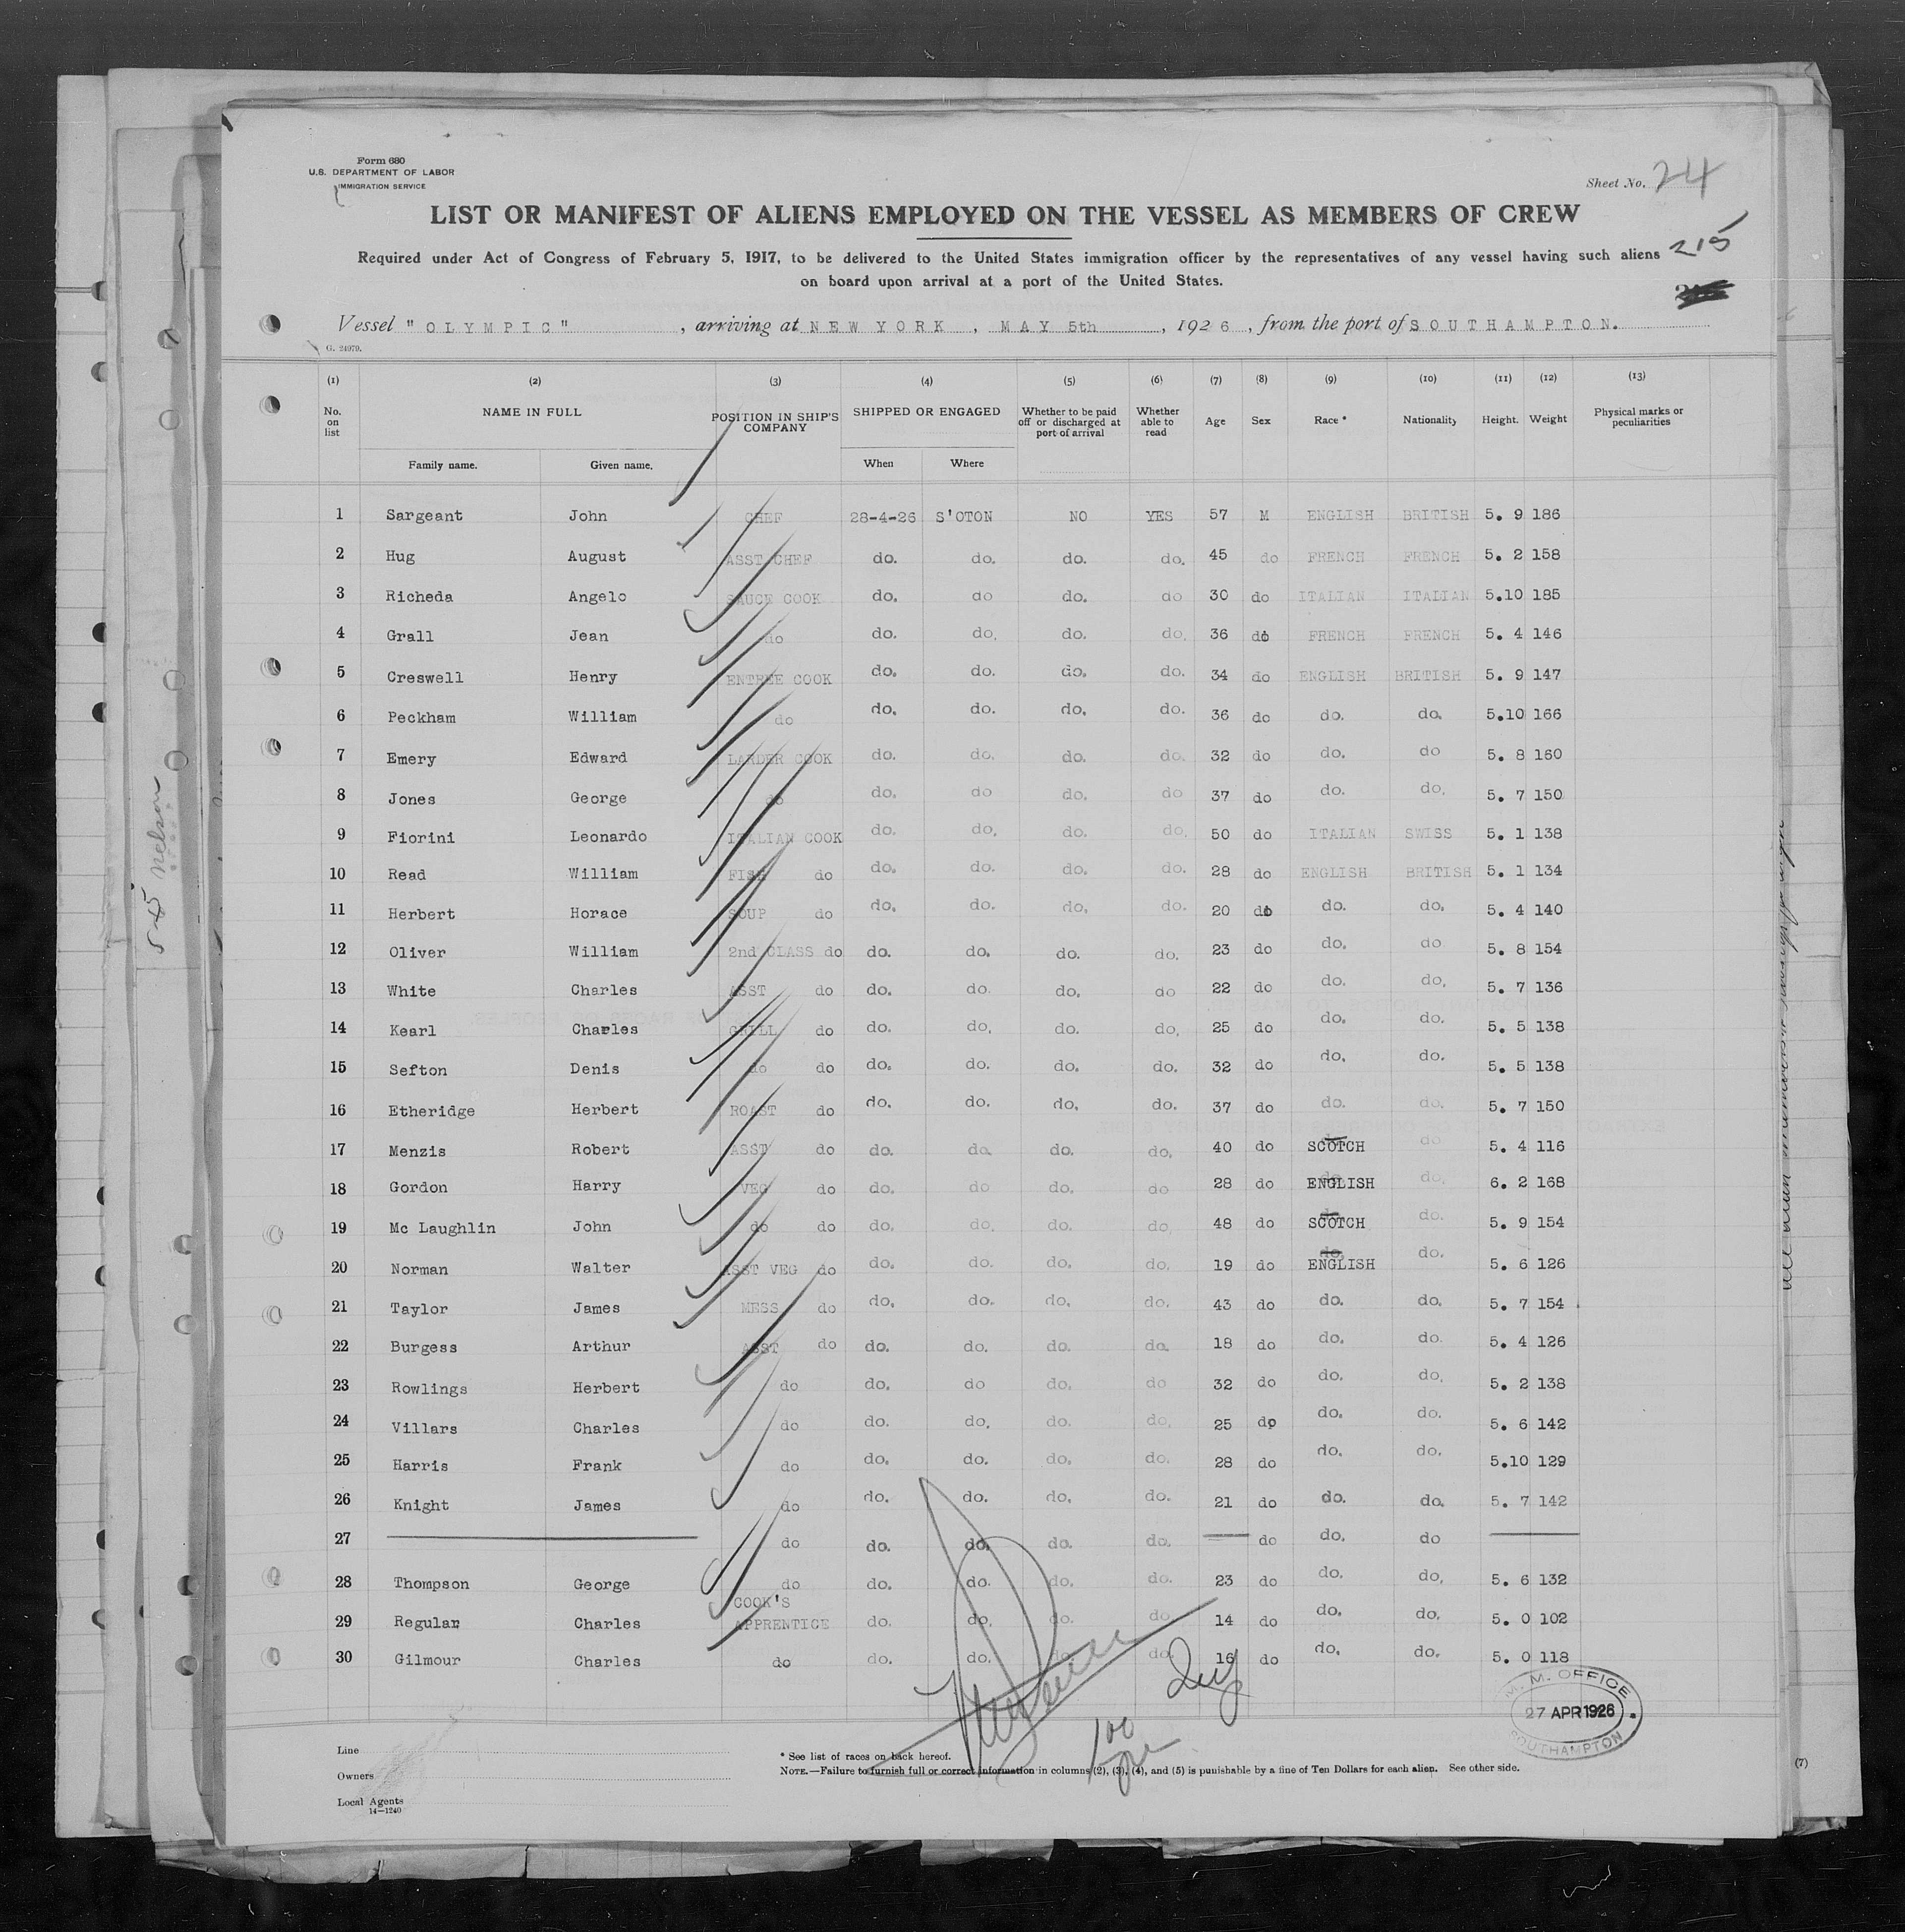 Form 680
U.S. DEPARTMENT OF LABOR
IMMIGRATION SERVICE
Sheet No. 24
LIST OR MANIFEST OF ALIENS EMPLOYED ON THE VESSEL AS MEMBERS OF CREW
215
Required under Act of Congress of February 5, 1917, to be delivered to the United States immigration officer by the representatives of any vessel having such aliens
on board upon arrival at a port of the United States.
Vessel "OLYMPIC", arriving at NEW YORK, MAY 5th, 1926, from the port of SOUTHAMPTON.
G. 24079.
(1) (2) (3) (4) (5) (6) (7) (8) (9) (10) (11) (12) (13)
No. on list NAME IN FULL POSITION IN SHIP'S COMPANY SHIPPED OR ENGAGED Whether to be paid off or discharged at port of arrival Whether able to read Age Sex Race * Nationality Height. Weight Physical marks or peculiarities
Family name. Given name. When Where
1 Sargeant John CHEF 28-4-26 S'OTON NO YES 57 M ENGLISH BRITISH 5. 9 186
2 Hug August ASST CHEF do. do. do. do. 45 do FRENCH FRENCH 5. 2 158
3 Richeda Angelo SAUCE COOK do. do do. do 30 do ITALIAN ITALIAN 5.10 185
4 Grall Jean do do. do. do. do. 36 do FRENCH FRENCH 5. 4 146
5 Creswell Henry ENTREE COOK do. do. do. do. 34 do ENGLISH BRITISH 5. 9 147
6 Peckham William do do. do. do. do. 36 do do. do. 5.10 166
7 Emery Edward LARDER COOK do. do. do. do. 32 do do. do 5. 8 160
8 Jones George do do. do do. do 37 do do. do. 5. 7 150
9 Fiorini Leonardo ITALIAN COOK do. do. do. do. 50 do ITALIAN SWISS 5. 1 138
10 Read William FISH do do. do. do. do. 28 do ENGLISH BRITISH 5. 1 134
11 Herbert Horace SOUP do do. do. do. do. 20 do do. do. 5. 4 140
12 Oliver William 2nd CLASS do do. do. do. do. 23 do do. do 5. 8 154
13 White Charles ASST do do. do. do. do 22 do do. do. 5. 7 136
14 Kearl Charles GRILL do do. do. do. do. 25 do do. do. 5. 5 138
15 Sefton Denis do do do. do. do. do. 32 do do. do. 5. 5 138
16 Etheridge Herbert ROAST do do. do. do. do. 37 do do. do. 5. 7 150
17 Menzis Robert ASST do do. do. do. do. 40 do SCOTCH do 5. 4 116
18 Gordon Harry VEG do do. do do. do 28 do ENGLISH do. 6. 2 168
19 Mc Laughlin John do do do. do. do. do 48 do SCOTCH do. 5. 9 154
20 Norman Walter ASST VEG do do. do. do. do. 19 do ENGLISH do. 5. 6 126
21 Taylor James MESS do do. do. do. do. 43 do do. do. 5. 7 154
22 Burgess Arthur ASST do do. do. do. do. 18 do do. do. 5. 4 126
23 Rowlings Herbert do do. do do. do 32 do do. do. 5. 2 138
24 Villars Charles do do. do. do. do. 25 do do. do. 5. 6 142
25 Harris Frank do do. do. do. do. 28 do do. do. 5.10 129
26 Knight James do do. do. do. do. 21 do do. do. 5. 7 142
27 do do. do. do. do. do do. do
28 Thompson George do do. do. do. do. 23 do do. do. 5. 6 132
29 Regular Charles COOK'S APPRENTICE do. do. do. do. 14 do do. do. 5. 0 102
30 Gilmour Charles do do. do. do. do. 16 do do. do. 5. 0 118
M. M. OFFICE
27 APR 1926
SOUTHAMPTON
Line
Owners
Local Agents
14—1240
* See list of races on back hereof.
NOTE.—Failure to furnish full or correct information in columns (2), (3), (4), and (5) is punishable by a fine of Ten Dollars for each alien. See other side.
(7)
Nelson